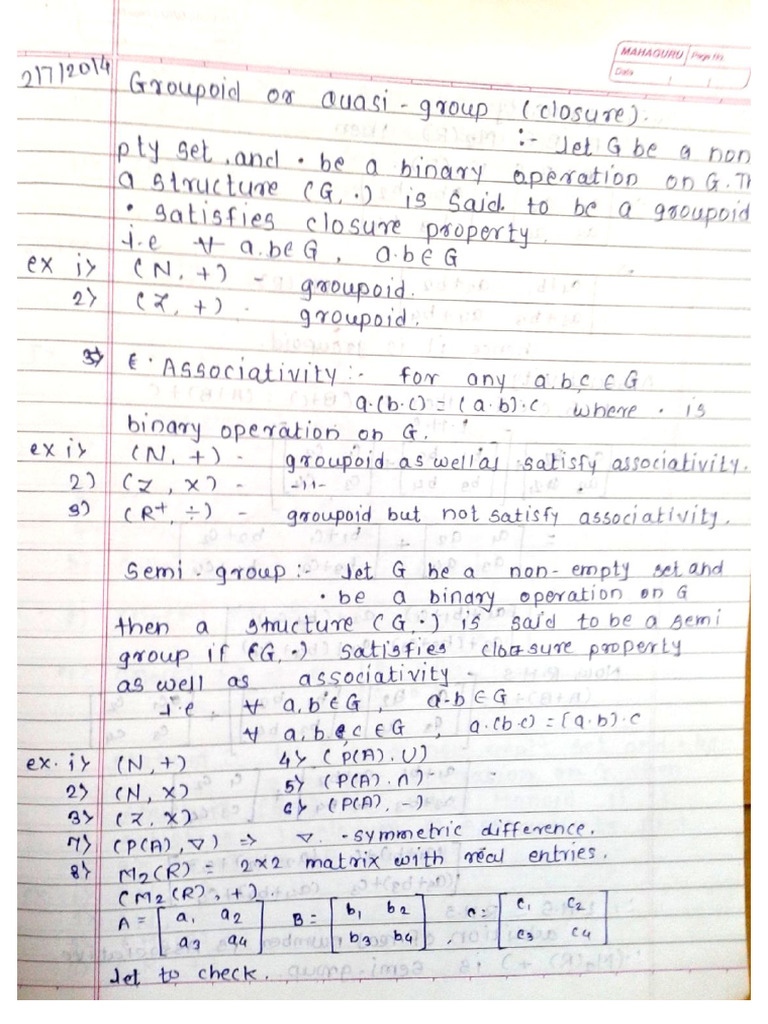 MAHAGURU Page No.
Date
2/7/2014
Groupoid or quasi-group (closure).
:- Let G be a non
pty set, and · be a binary operation on G. Th
a structure (G, ·) is said to be a groupoid
· satisfies closure property.
i.e ∀ a.b∈G, a.b∈G
ex 1> (N, +) - groupoid.
2> (Z, +) - groupoid.
3> · Associativity:- for any a,b,c ∈G
a.(b.c)=(a.b).c where · is
binary operation on G.
ex 1> (N, +) - groupoid as well as satisfy associativity.
2) (Z, ×) - -11-
3) (R+, ÷) - groupoid but not satisfy associativity.
Semi-group:- Let G be a non-empty set and
· be a binary operation on G
then a structure (G, ·) is said to be a semi
group if (G, ·) satisfies closure property
as well as associativity.
i.e ∀ a,b∈G, a.b∈G
∀ a,b,c∈G, a.(b.c)=(a.b).c
ex. 1> (N, +) 4> (P(A).U)
2> (N, ×) 5> (P(A).∩)
3> (Z, ×) 6> (P(A), -)
7) (P(A), ∇) => ∇ - symmetric difference.
8) M2(R) = 2×2 matrix with real entries.
(M2(R), +).
A = [a1 a2 B = [b1 b2 , c = [c1 c2
a3 a4] b3 b4] c3 c4]
Let to check.